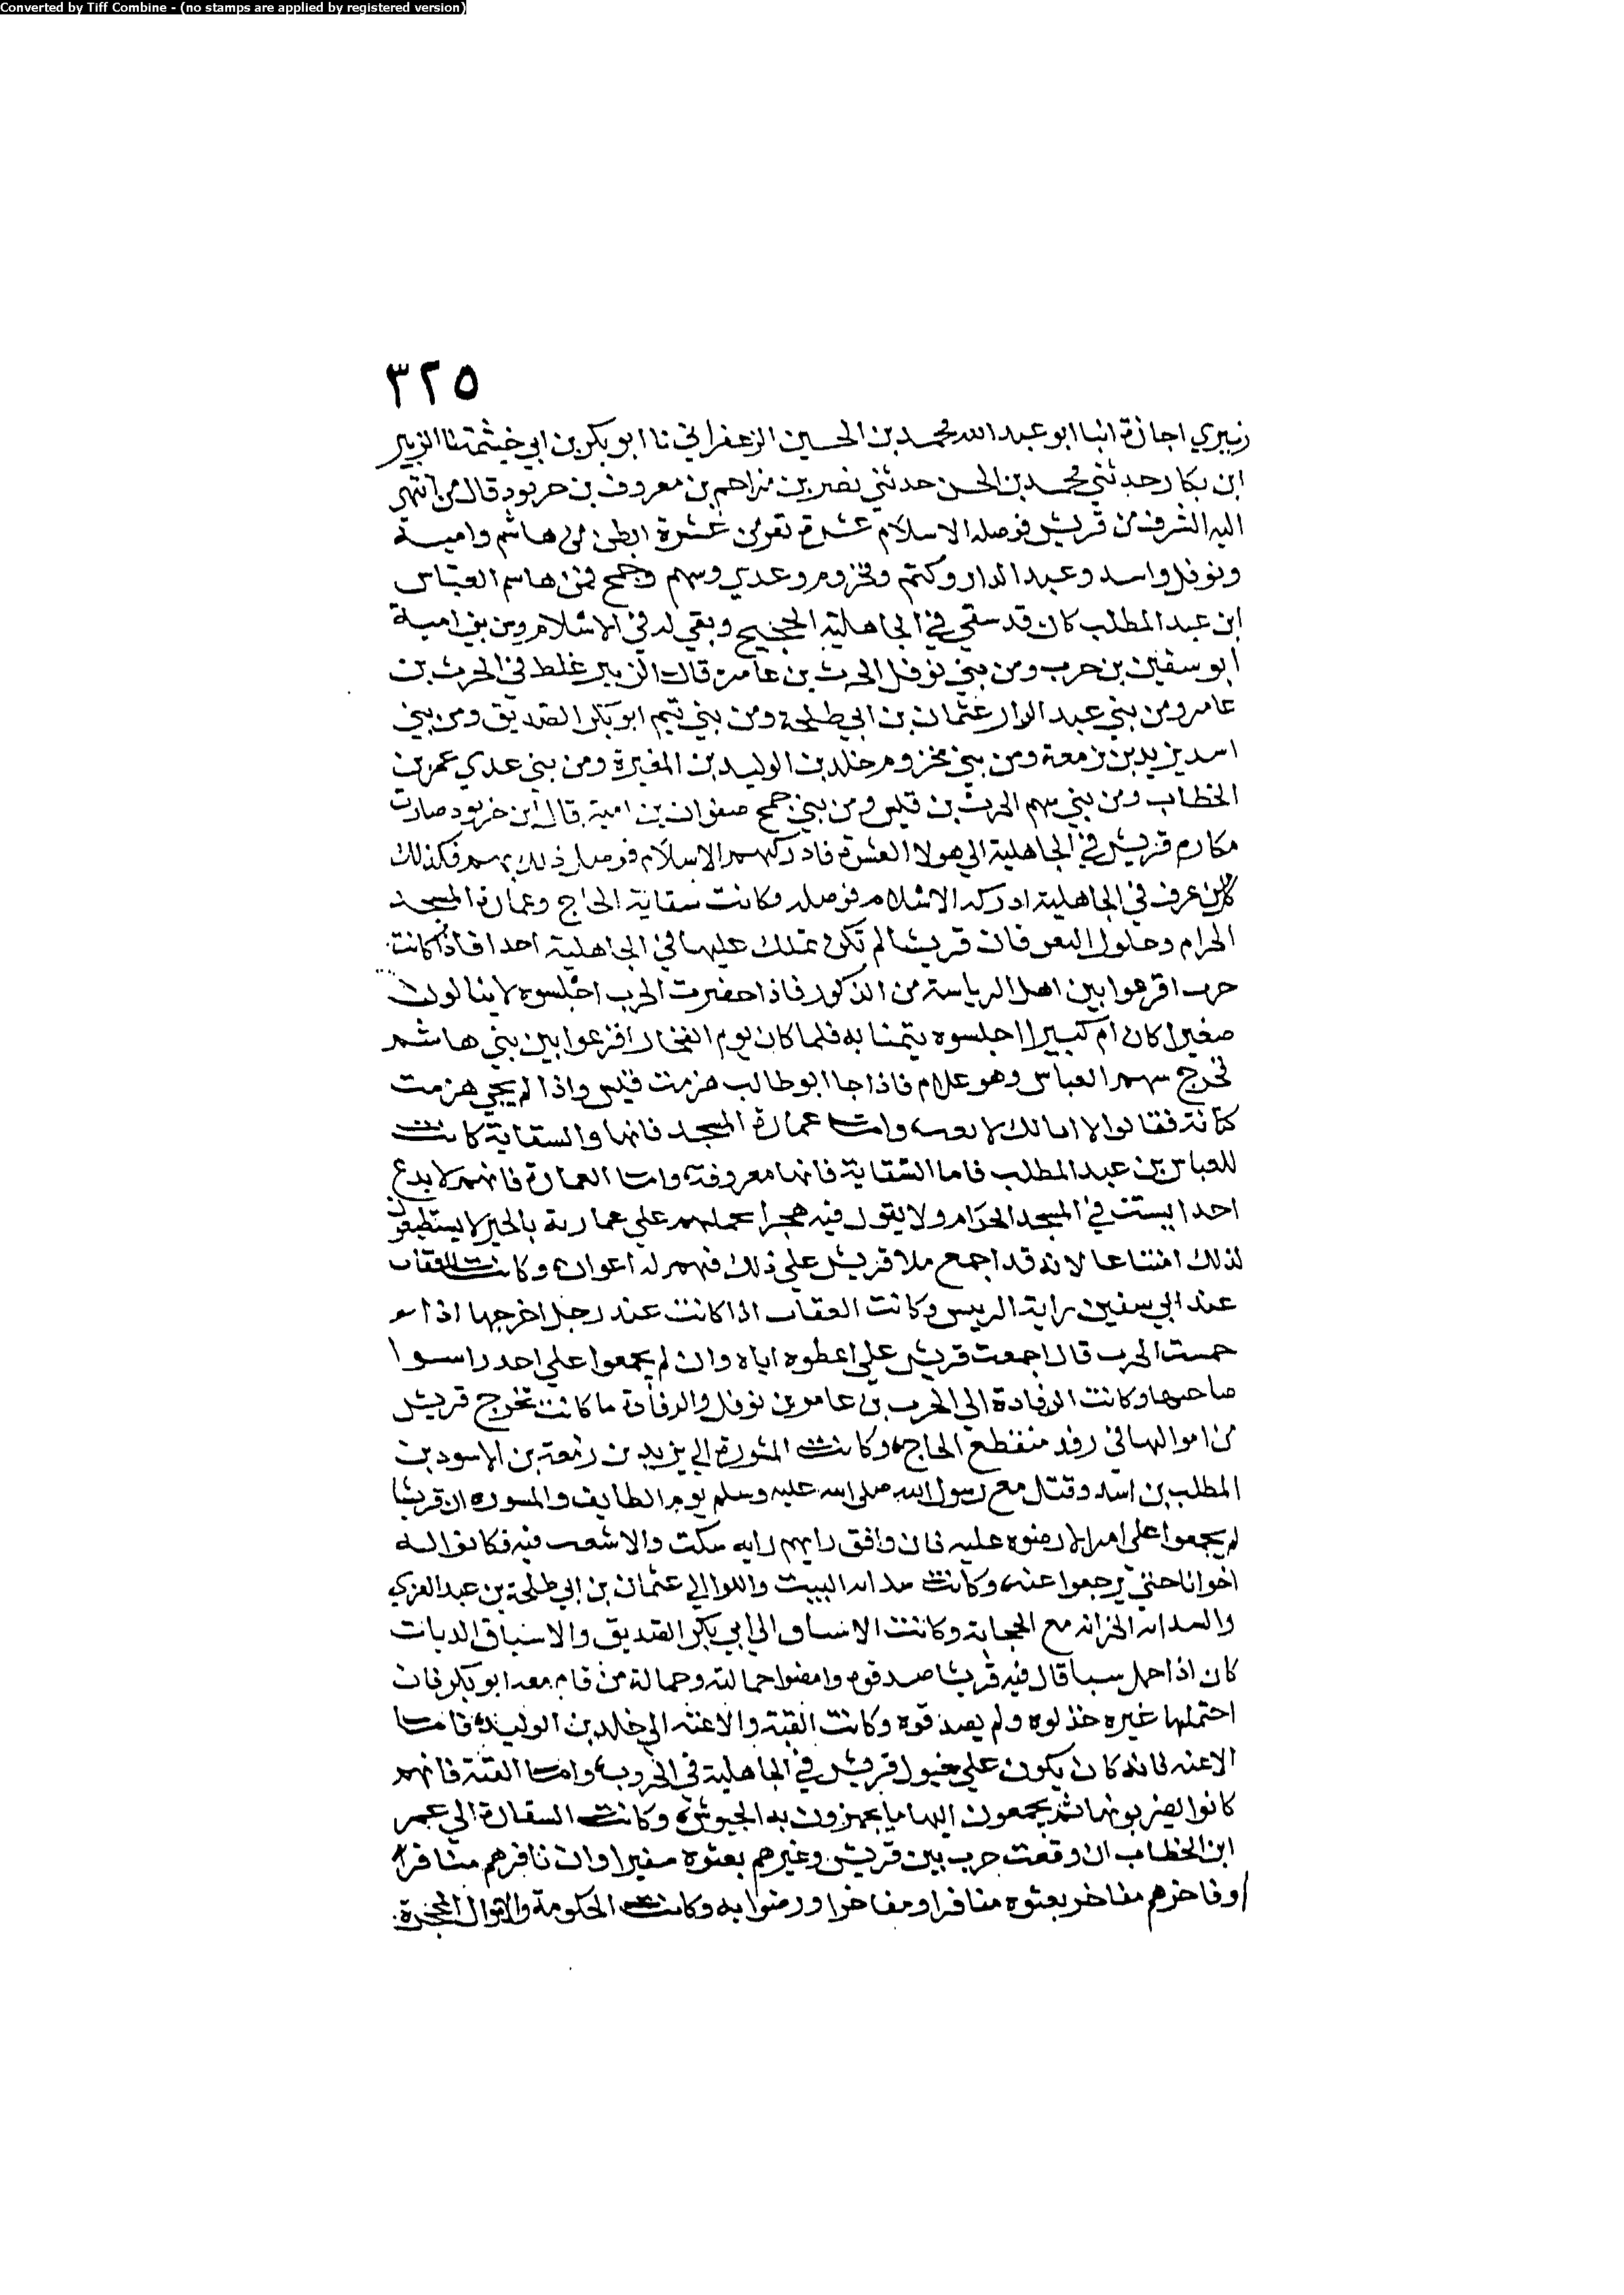 Converted by Tiff Combine - (no stamps are applied by registered version)
٣٢٥
زبيري اجازة انبا ابو عبد الله محمد بن الحسين الزعفراني نا ابو بكر بن ابي خيثمة نا الزبير
ابن بكار حدثني محمد بن الحسن حدثني نصر بن مزاحم بن معروف بن خربوذ قال من انتهى
اليه الشرف من قريش فوصله الاسلام عشرة نفر من عشرة ابطن من هاشم وامية
ونوفل واسد وعبد الدار وكتم ومخزوم وعدي وسهم وجمح فمن هاشم العباس
ابن عبد المطلب كان قد سقي في الجاهلية الحجيج وبقي له في الاسلام ومن بني امية
ابو سفين بن حرب ومن بني نوفل الحرث بن عامر قال الزبير غلط في الحرث بن
عامر ومن بني عبد الدار عثمان بن ابي طلحة ومن بني تيم ابو بكر الصديق ومن بني
اسد يزيد بن زمعة ومن بني مخزوم خلد بن الوليد بن المغيرة ومن بني عدي عمر بن
الخطاب ومن بني سهم الحرث بن قيس ومن بني جمح صفوان بن امية قال ابن خربوذ صارت
مكارم قريش في الجاهلية الي هولا العشرة فادركهم الاسلام فوصل ذلك بهم فكذلك
كل من عرف في الجاهلية ادركه الاسلام فوصله وكانت سقاية الحاج وعمارة المسجد
الحرام وحلول النفر فان قريشا لم تكن تملك عليها في الجاهلية احدا فاذا كانت
حرب اقرعوا بين اهل الرياسة من الذكور فاذا حضرت الحرب اجلسوه لا يبالون
صغيرا كان ام كبيرا اجلسوه تيمنا به فلما كان يوم الفجار اقرعوا بين بني هاشم
فخرج سهم العباس وهو غلام فاذا جا ابو طالب هزمت قيس واذا لم يجي هزمت
كنانة فقالوا لا ابا لك لا تغب وامّا عمارة المسجد فانها والسقاية كانت
للعباس بن عبد المطلب فاما السقاية فانها معروفة وامّا العمارة فانهم لا يدع
احدا يستب في المسجد الحرام ولا يقول فيه هجرا يحملهم علي عمارته بالخير لا يستطيعون
لذلك امتناعا لانه قد اجمع ملا قريش علي ذلك فهم له اعوان وكانت العقاب
عند ابي سفين راية الرييس وكانت العقاب اذا كانت عند رجل اخرجها اذا
حمست الحرب قال اجمعت قريش علي اعطوه اياه وان لم يجمعوا علي احد راسوا
صاحبها وكانت الرفادة الي الحرث بن عامر بن نوفل والرفادة ما كانت تخرج قريش
من اموالها في رفد منقطع الحاج وكانت المشورة الي يزيد بن زمعة بن الاسود بن
المطلب بن اسد وقتل مع رسول الله صلى الله عليه وسلم يوم الطايف والمسوره ان قريشا
لم يجمعوا على امر الا رضوه عليه فان وافق رايهم رايه سكت والا شعب فيه فكانوا له
اخوانا حتى يرجعوا عنه وكانت سدانه البيت واللوا الي عثمان بن ابي طلحة بن عبد العزي
والسدانه الخزانه مع الحجابة وكانت الاشناق الي ابي بكر الصديق والاشناق الديات
كان اذا حمل سبا قال فيه قريشا صدقوه وامضوا حمالته وحمالة من قام معه ابو بكر فان
احتملها غيره خذلوه ولم يصدقوه وكانت القبة والاعنه الي خلد بن الوليد فامّا
الاعنه فانه كان يكون علي خيول قريش في الجاهلية في الحروب وامّا القبة فانهم
كانوا يضربونها ثم يجمعون اليها ما يجهزون به الجيوش وكانت السفارة الي عمر
ابن الخطاب ان وقعت حرب بين قريش وغيرهم بعثوه سفيرا وان نافرهم منافر
او فاخرهم مفاخر بعثوه منافرا ومفاخرا ورضوا به وكانت الحكومة والاموال المحجرة